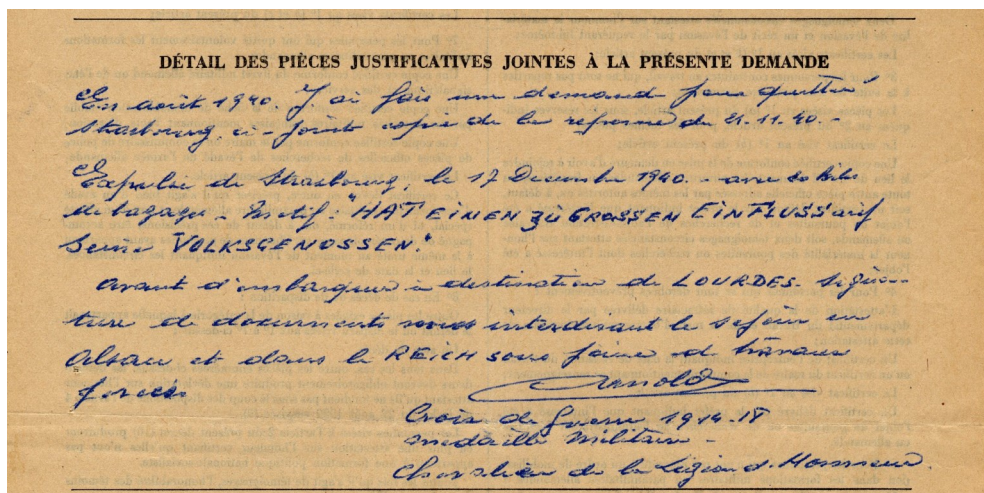 DÉTAIL DES PIÈCES JUSTIFICATIVES JOINTES À LA PRÉSENTE DEMANDE
En août 1940. J'ai fais une demande pour quitter
Strasbourg, ci-joint copie de la reforme du 21.11.40.-
Expulsé de Strasbourg, le 17 Decembre 1940.- avec 20 kilos
de bagage - Motif: "HAT EINEN ZU GROSSEN EINFLUSS auf
seine VOLKSGENOSSEN."
Avant d'embarquer à destination de LOURDES. Signa-
ture de documents nous interdisant le sejour en
Alsace et dans le REICH sous peine de travaux
forcés
Arnold
Croix de Guerre 1914-18
Medaille Militaire -
Chevalier de la Légion d'Honneur.